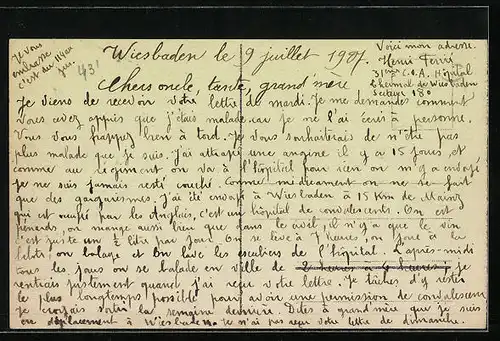 Je vous
embrasse
43'
Wiesbaden le 9 juillet 1927.
Voici mon adresse.
Henri Ferri
31ème C.O.A. Hôpital
thermal de Wiesbaden
Secteur 180
Chers oncle, tante, grand'mère
Je viens de recevoir votre lettre de mardi. Je me demande comment
vous avez appris que j'étais malade car je ne l'ai écris à personne.
Vous vous frappez bien à tord. Je vous souhaiterais de n'être pas
plus malade que je suis. J'ai attrapé une angine il y a 15 jours, et
comme au régiment on va à l'hôpital pour rien on m'y a envoyé
je ne suis jamais resté couché. Comme médicament on ne se fait
que des gargarismes. J'ai été envoyé à Wiesbaden à 15 Km de Mainz
qui est occupé par les Anglais, c'est un hôpital de convalescents. On est
peinards, on mange aussi bien que dans le civil, il n'y a que le vin
c'est juste un ½ litre par jour. On se lève à 7 heures, on fout
lits, on balaye et on lave les escaliers de l'hôpital. L'après-midi
tous les jours on se balade en ville de 2 heures à heures, je
rentrais justement quand j'ai reçu votre lettre. Je tâches d'y rester
le plus longtemps possible pour avoir une permission de convalescence
Je croyais sortir la semaine dernière. Dites à grand'mère que je suis
en déplacement à Wiesbaden. Je n'ai pas reçu votre lettre de dimanche.